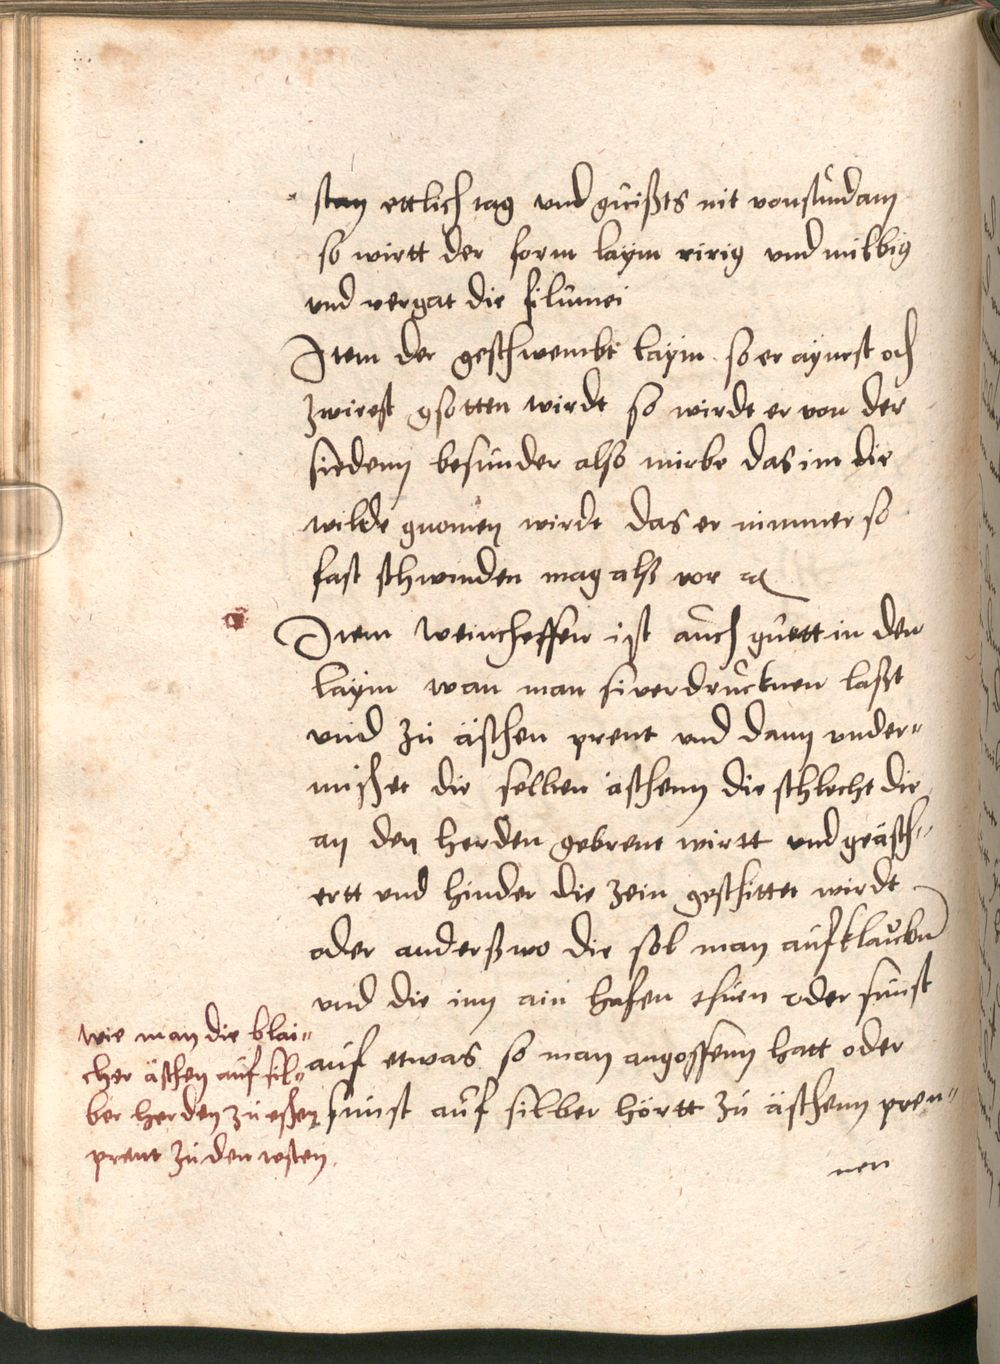 stan ettlich tag und geüßts nit vonstundann
so wirtt der form laym ririg und milbig
und vergat die filumei
Item der geschwembt laym so er aynest och
zwirest gsotten wirdt so wirdt er von der
siedenn besunder also mirbe das im die
wilde gnomen wirdt das er nimmer so
fast schwinden mag alß vor
Item weincheffen ist auch guett in den
laym wan man si verdrucknen laßt
und zu äschen prent und dann under-
mischet die selben äschenn die schlecht die
an den herden gebrent wirtt und geäsch-
ertt und hinder die zein geschittet wirdt
oder anderßwo die sol man aufklaubn
und die inn ain hafen thuen oder sunst
auf etwas so man angossenn hatt oder
sunst auf silber hörtt zu äschenn pren-
nen
wie man die blai-
cher äschen auf sil-
ber herden zu eschen
prent zu den